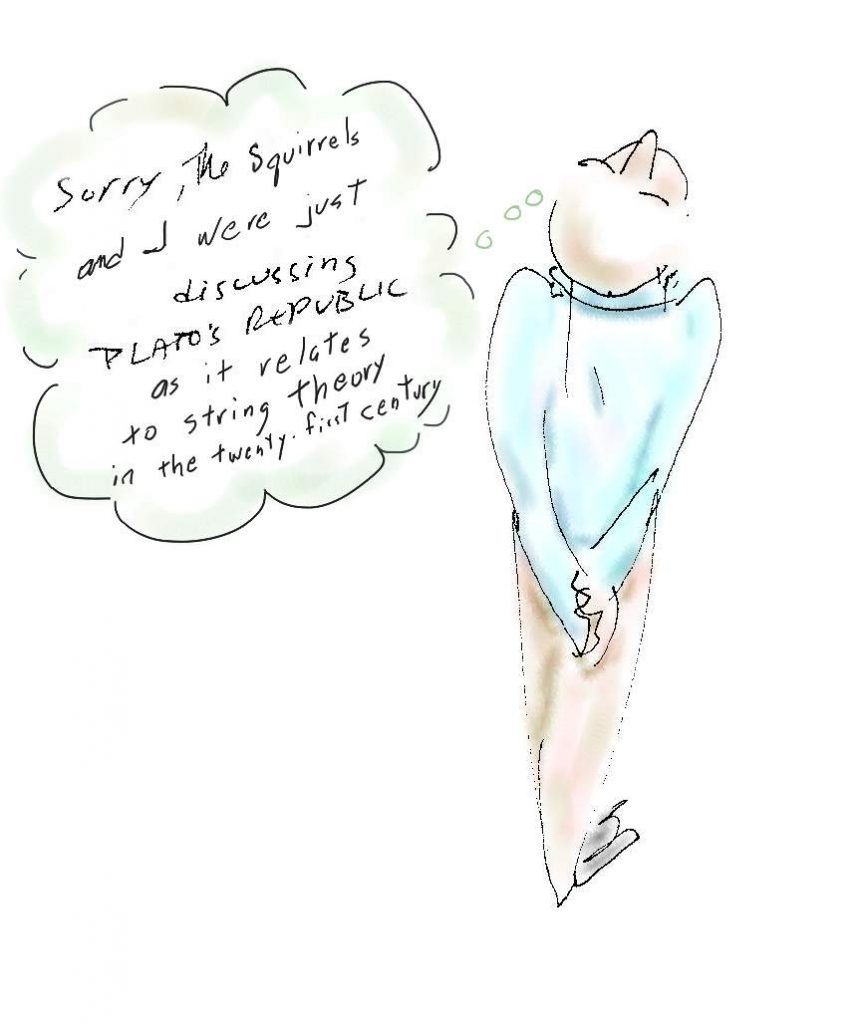 Sorry, The Squirrels
and I were just
discussing
PLATO'S REPUBLIC
as it relates
to string theory
in the twenty-first century